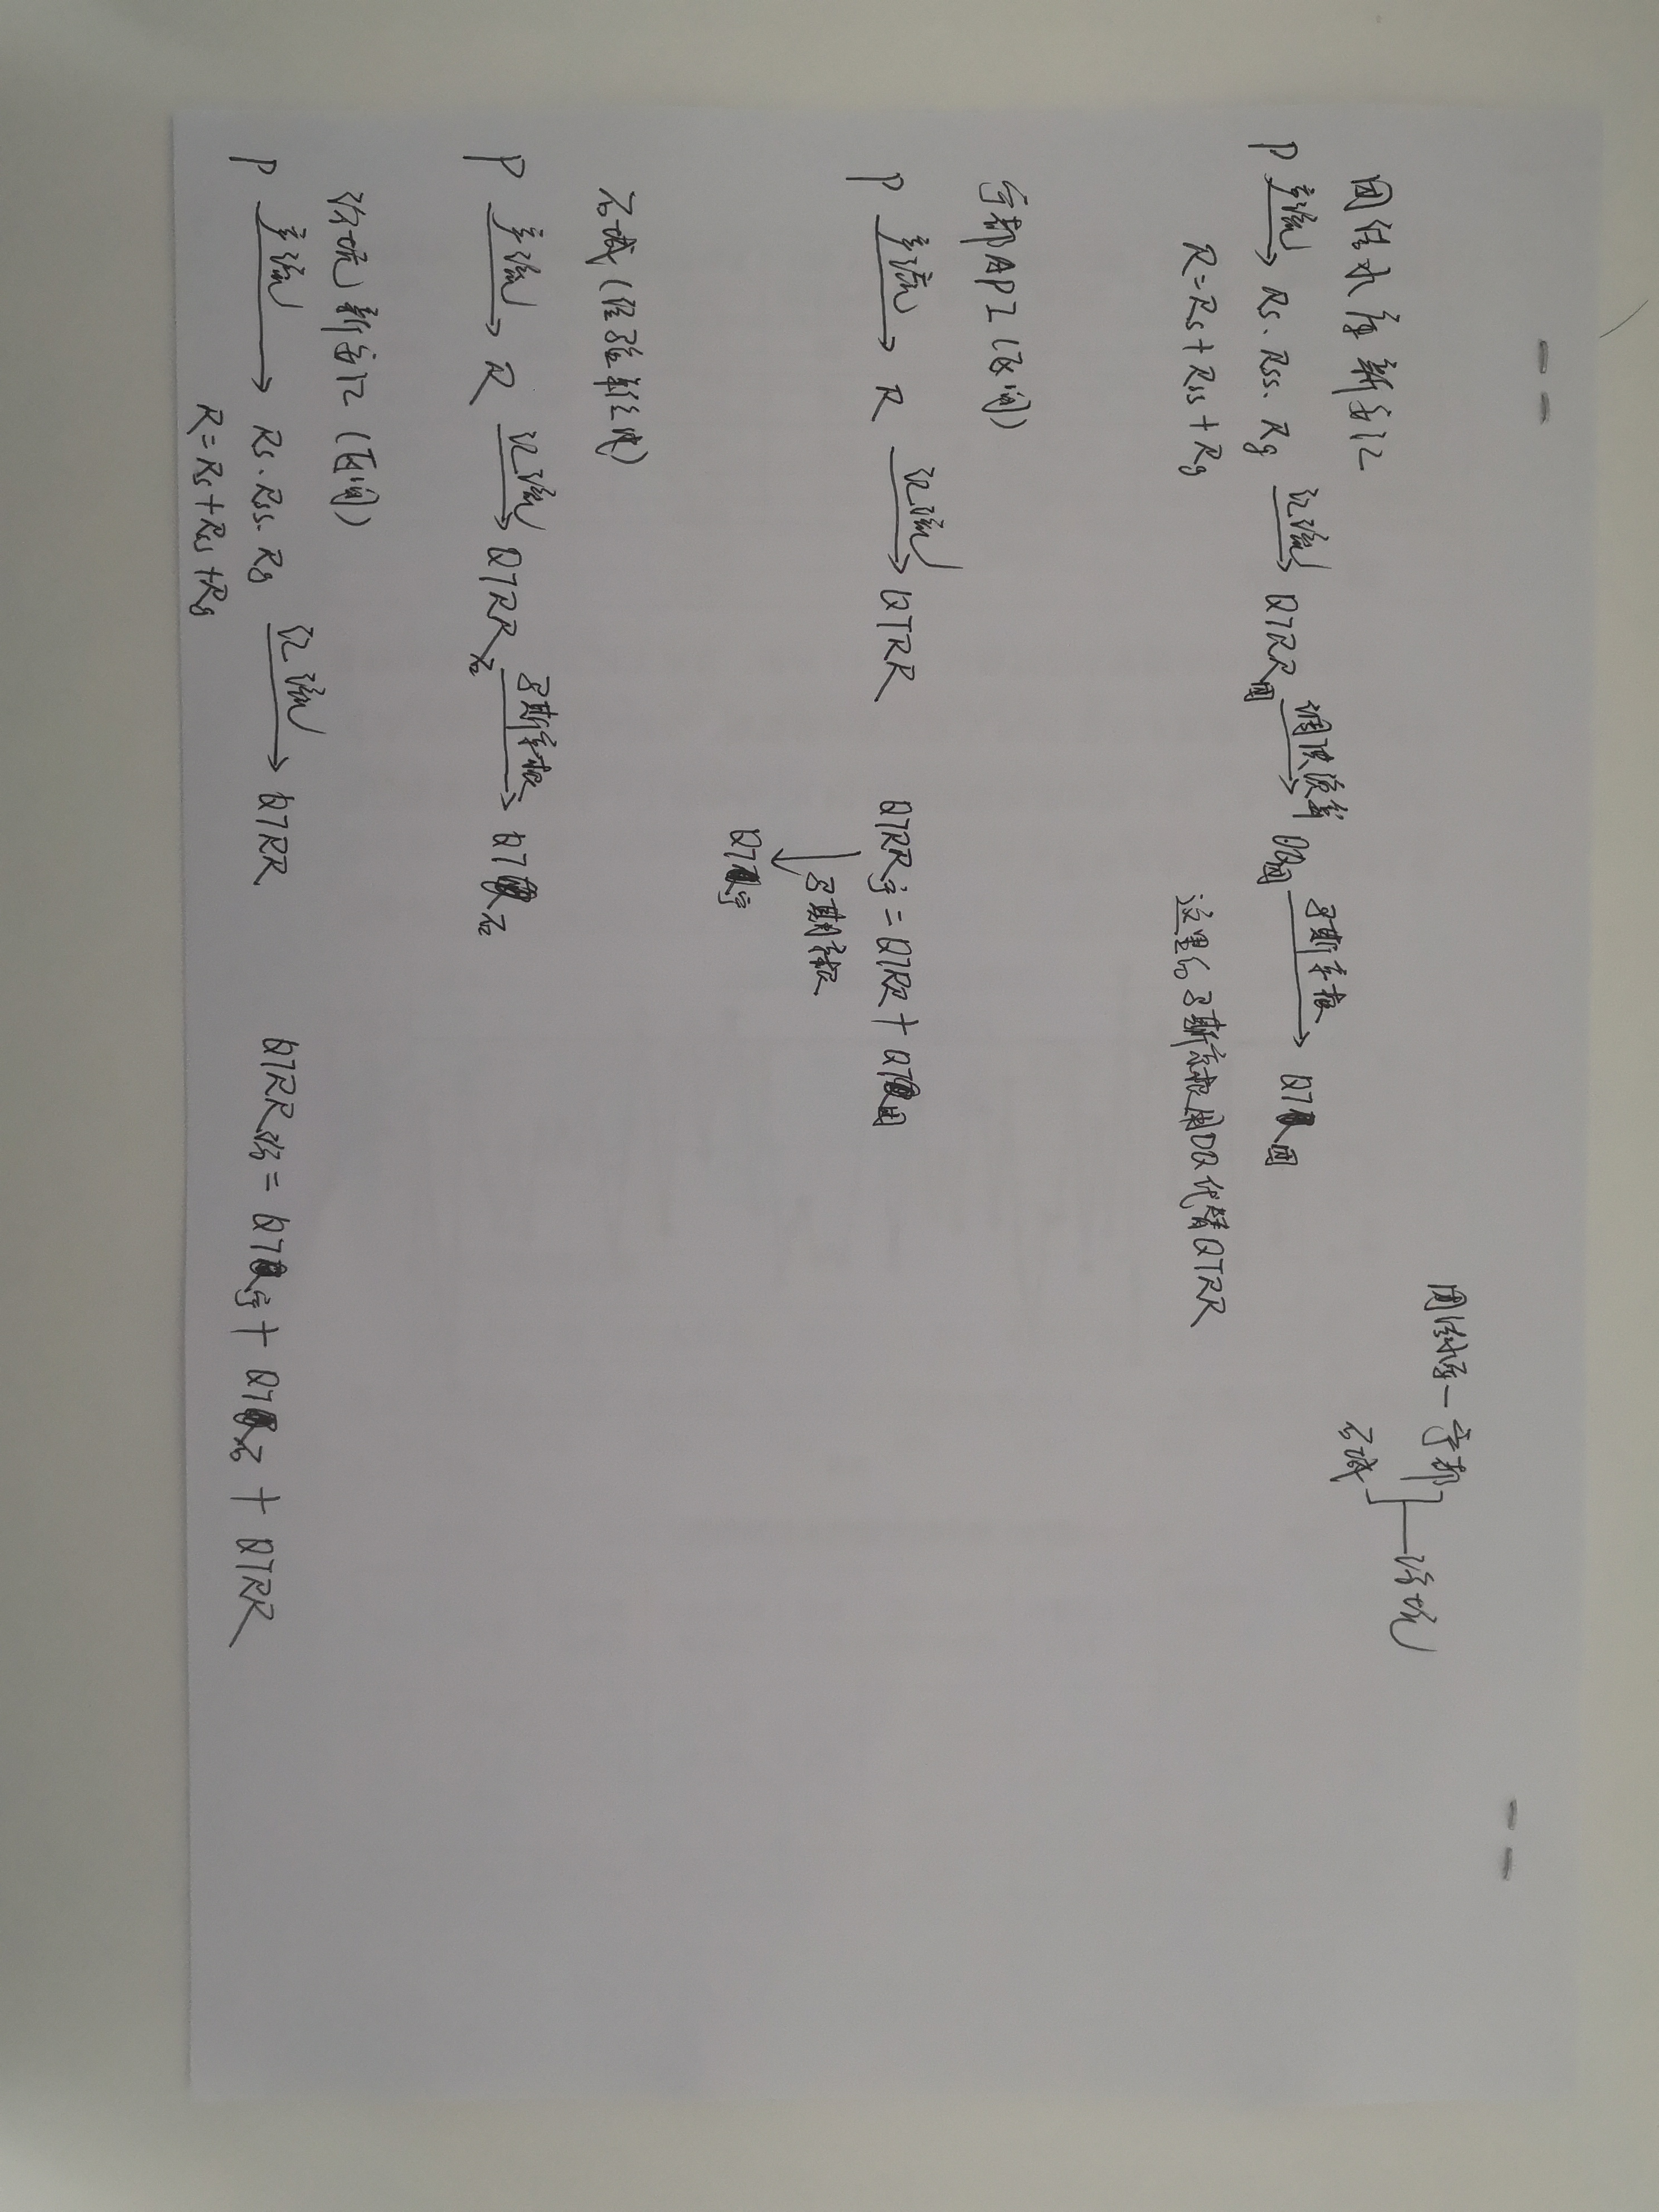 团结水库 — 宁都
石城
汾坑
团结水库新安江
P 产流→ Rs. Rss. Rg 汇流→ QTRR团 调洪演算→ DQ团 马斯京根→ QTR团
R=Rs+Rss+Rg
这里的马斯京根用DQ代替QTRR
宁都API(区间)
P 产流→ R 汇流→ QTRR QTRR宁=QTRR+QTR团
马斯京根
QTR宁
石城(经验单位线)
P 产流→ R 汇流→ QTRR石 马斯京根→ QTR石
汾坑新安江(区间)
P 产流→ Rs.Rss.Rg 汇流→ QTRR QTRR汾=QTR宁+QTR石+QTRR
R=Rs+Rss+Rg